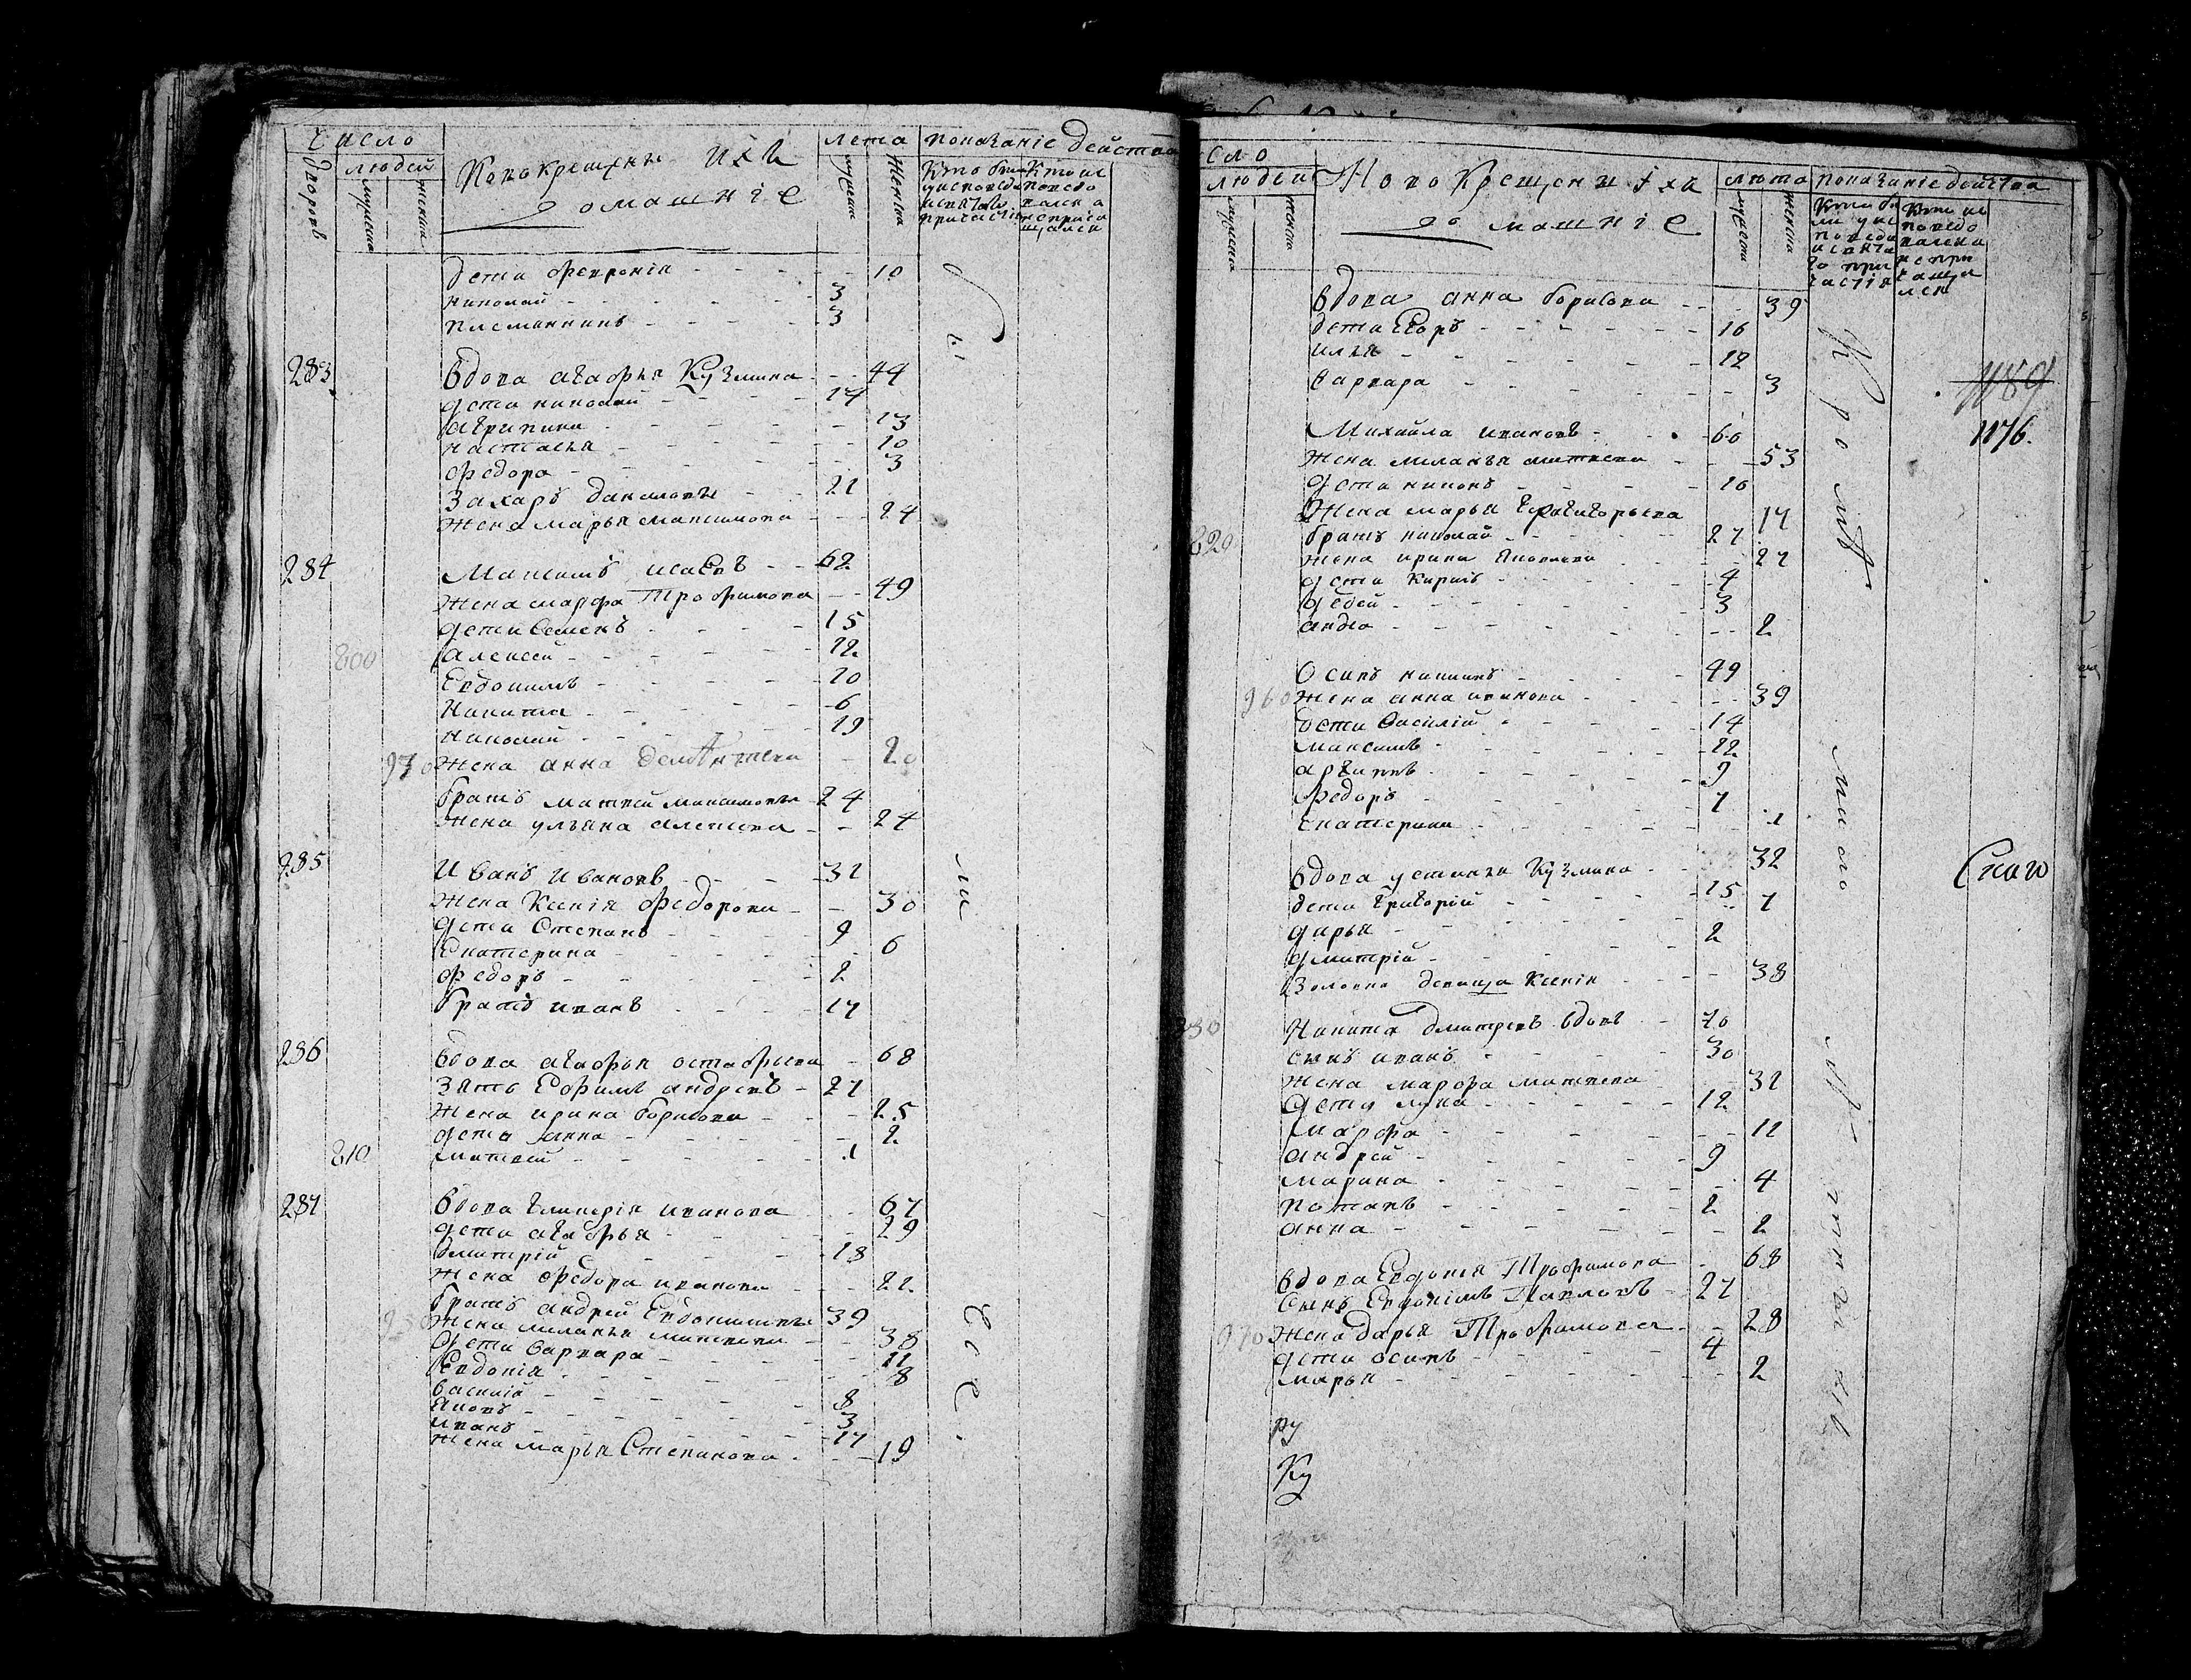 Число
Дворовъ
людей
мужеска
женска
Новокрещены ихъ
домашніе
лета
мужеска
женска
показаніе действа
Кто были
у исповеди
и святаго
причастія
Кто не
поведо
вался
не прича
щался
Дети Февронія - - - - - 10
николай - - - - - 3
племянникъ - - - - 3
283 Вдова агафья Кузмина - - 44
дети николай - - - - 14
агрипина - - - - - 13
настасья - - - - - 10
федора - - - - - 3
Захаръ даниловъ - - 21
Жена марья максимова - - - 24
284 Максимъ исаевъ - - 62
Жена марфа Трофимова - - 49
дети Семенъ - - - - 15
800 Алексей - - - - - 12
Евдокимъ - - - - - 10
Никита - - - - - 6
Николай - - - - - 19
Жена анна - 20
братъ матвей максимовъ - 24
Жена ульяна алексеева - - 24
285 Иванъ Ивановъ - - - 31
Жена Ксенія Федорова - - 30
дети Степанъ - - - - 9
Екатерина - - - - - 6
федоръ - - - - - 2
братъ иванъ - - - - 17
286 вдова агафья остафьева - 68
Зять Ефимъ андреевъ - 27
Жена ирина борисова - - - 25
дети анна - - - - - 2
810 матвей - - - - - 1
287 Вдова Гликерія иванова - - 67
дети агафья - - - - - 29
дмитрій - - - - 18
Жена Федора иванова - - - 22
братъ андрей Евдокимовъ 39
Жена маланья матвеева - 38
дети варвара - - - - - 11
Евдокія - - - - - 8
василій - - - - - 8
Яковъ - - - - - 3
иванъ - - - - - 17
Жена марья Степанова - - - 19
Все
сло
людей
мужеска
женска
Новокрещены ихъ
домашніе
лета
мужеска
женска
показаніе действа
Кто бы
ли у ис
поведи
и свята
го при
частія
Кто не
поведо
вался и
не при
чаща
лся
Вдова анна борисова - - - 39
дети Егоръ - - - - - 16
илья - - - - - 12
варвара - - - - - 3
1189
1176.
Михайла ивановъ - - - 60
Жена маланья матвеева - - - 53
дети никонъ - - - - 16
Жена марья Григорьева 17
820 братъ николай - - - - - 27
Жена ирина Яковлева - - - - 27
дети Кирилъ - - - - - 4
- - - - - 3
- - - - - 2
Осипъ никитинъ - - - - 49
960 Жена анна иванова - - - - 39
дети Василій - - - - 14
максимъ - - - - - 12
архипъ - - - - - 9
Федоръ - - - - - 7
Екатерина - - - - - 1
Вдова устинья Кузмина - - 32
дети Григорій - - - - - 15
дарья - - - - - 7
дмитрій - - - - - 2
Золовка девица Ксенія - - - 38
Скаго
830 Никита дмитревъ вдовъ - 70
сынъ иванъ - - - - - 30
Жена марфа матвеева - - - 31
дети лука - - - - - 12
Марфа - - - - - 11
андрей - - - - - 9
марина - - - - - 4
потапъ - - - - - 2
анна - - - - - 2
вдова Евдокия Трофимова - 68
Сынъ Евдокимъ Павловъ - 27
970 Жена дарья Трофимова - - 28
дети осипъ - - - - - 4
марья - - - - - 2
Кроме
ру
Ку